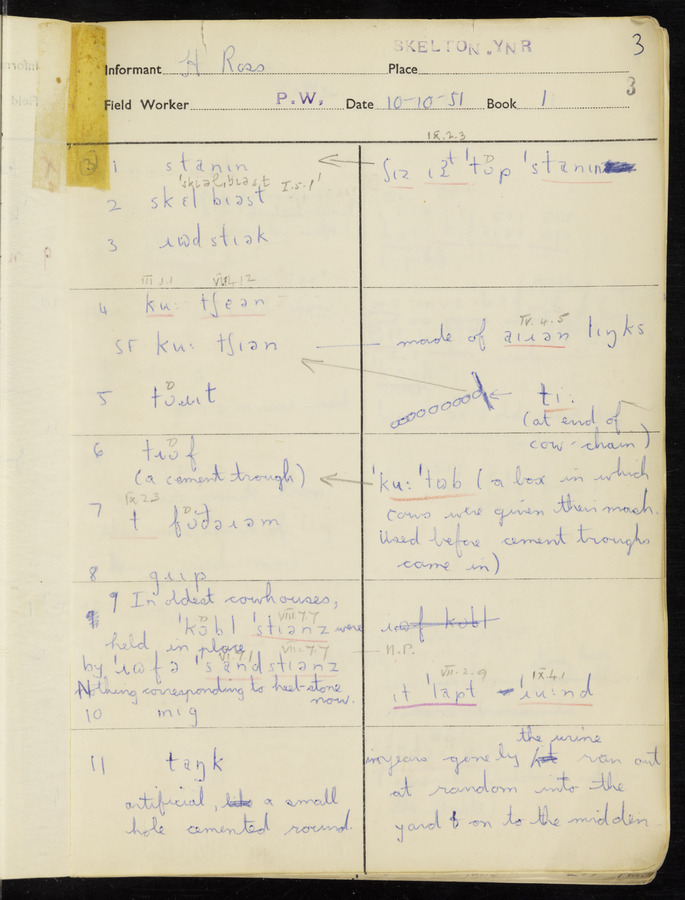 SKELTON. YNR
3
Informant H Ross Place
3
Field Worker P.W. Date 10-10-51 Book 1
IX.2.3
3
1 stanɪn
ʃɪz
ˈstanɪn
I.5.1
2 skɛl biəst
3 ɹɷd stiək
III.1.1
4 ku: tʃeən
SI ku: tʃɪən
IV.4.5
made of aɪɹən lɪŋks
5
tɪ:
(at end of
cow-chain)
6
(a cement trough)
ˈku: ˈtɷb (a box in which
cows were given their mash.
Used before cement troughs
came in)
IX.2.3
7 t
8 gɹɪp
9 In oldest cowhouses,
VIII.7.7
ˈstɪənz were
held in place
N.P.
VIII.7.7
by ˈɹɷf ə ˈsandstɪənz
Nothing corresponding to heel-stone
now.
VII.2.9
IX.4.1
ɪt ˈlapt ˈɹu:nd
10 mɪg
11 taŋk
artificial, a small
hole cemented round.
in years gone by the urine ran out
at random into the
yard & on to the midden